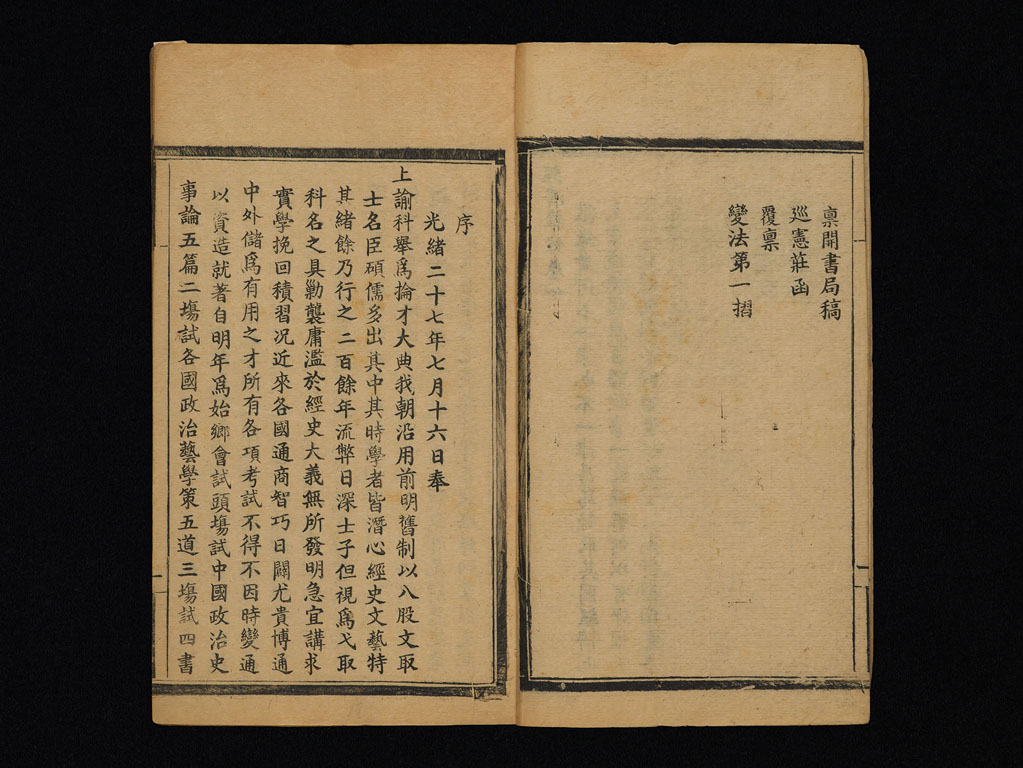 稟開書局稿
巡憲莊函
覆稟
變法第一摺
序
光緒二十七年七月十六日奉
上諭科舉爲掄才大典我朝沿用前明舊制以八股文取
士名臣碩儒多出其中其時學者皆潛心經史文藝特
其緒餘乃行之二百餘年流弊日深士子但視爲弋取
科名之具勦襲庸濫於經史大義無所發明急宜講求
實學挽回積習况近來各國通商智巧日闢尤貴博通
中外儲爲有用之才所有各項考試不得不因時變通
以資造就著自明年爲始鄉會試頭塲試中國政治史
事論五篇二塲試各國政治藝學策五道三塲試四書